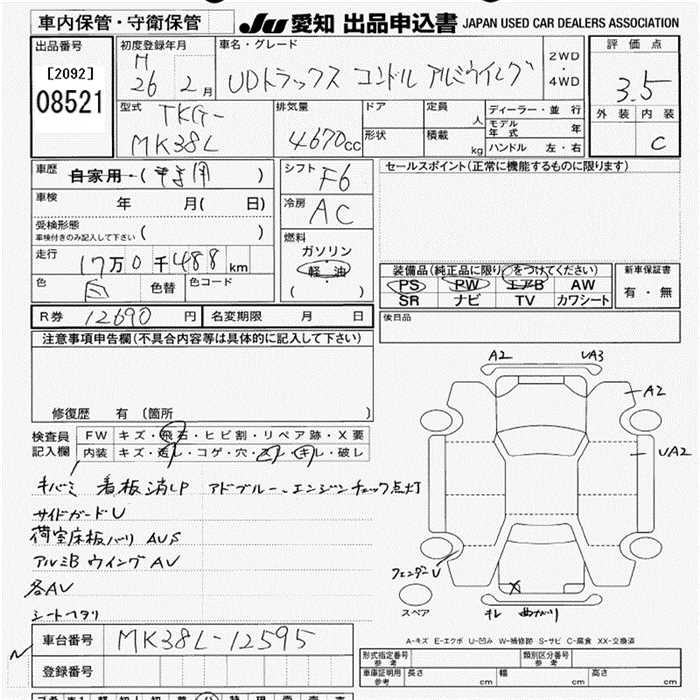 車内保管・守衛保管
JU 愛知 出品申込書 JAPAN USED CAR DEALERS ASSOCIATION
出品番号
[2092]
08521
初度登録年月
H 26年 2月
車名・グレード
UDトラックス コンドル アルミウイング
2WD
・
4WD
評価点
3.5
外装 内装
C
型式
TKG-
MK38L
排気量
4670cc
ドア
形状
定員 人
積載 kg
ディーラー・並行
モデル年式 年
ハンドル 左・右
車歴
自家用・( )
車検 年 月( 日)
受検形態
車検付きのみ記入して下さい ( )
走行
17万0千488km
色 白 色替 色コード
シフト
F6
冷房
AC
燃料
ガソリン
・
軽油
( )
セールスポイント(正常に機能するものに限ります)
装備品(純正品に限り○をつけてください)
PS PW エアB AW
SR ナビ TV カワシート
新車保証書
有・無
R券 12690円 名変期限 月 日
後日品
注意事項申告欄(不具合内容等は具体的に記入して下さい)
修復歴 有 〔箇所 〕
検査員
記入欄
FW キズ・飛石・ヒビ割・リペア跡・X要
内装 キズ・汚レ・コゲ・穴・スレ・キレ・破レ
キバミ 看板消し アドブルー、エンジンチェック点灯
サイドガードU
荷室床板バリ AUS
アルミB ウイング AU
各AU
シートヘタリ
A2 UA3
A2
UA2
フェンダーU
スペア
X
キレ 曲がり
A-キズ E-エクボ U-凹み W-補修跡 S-サビ C-腐食 XX-交換済
車台番号 MK38L-12595
登録番号
形式指定番号
参考
類別区分番号
参考
車庫証明用
参考
長さ cm 幅 cm 高さ cm